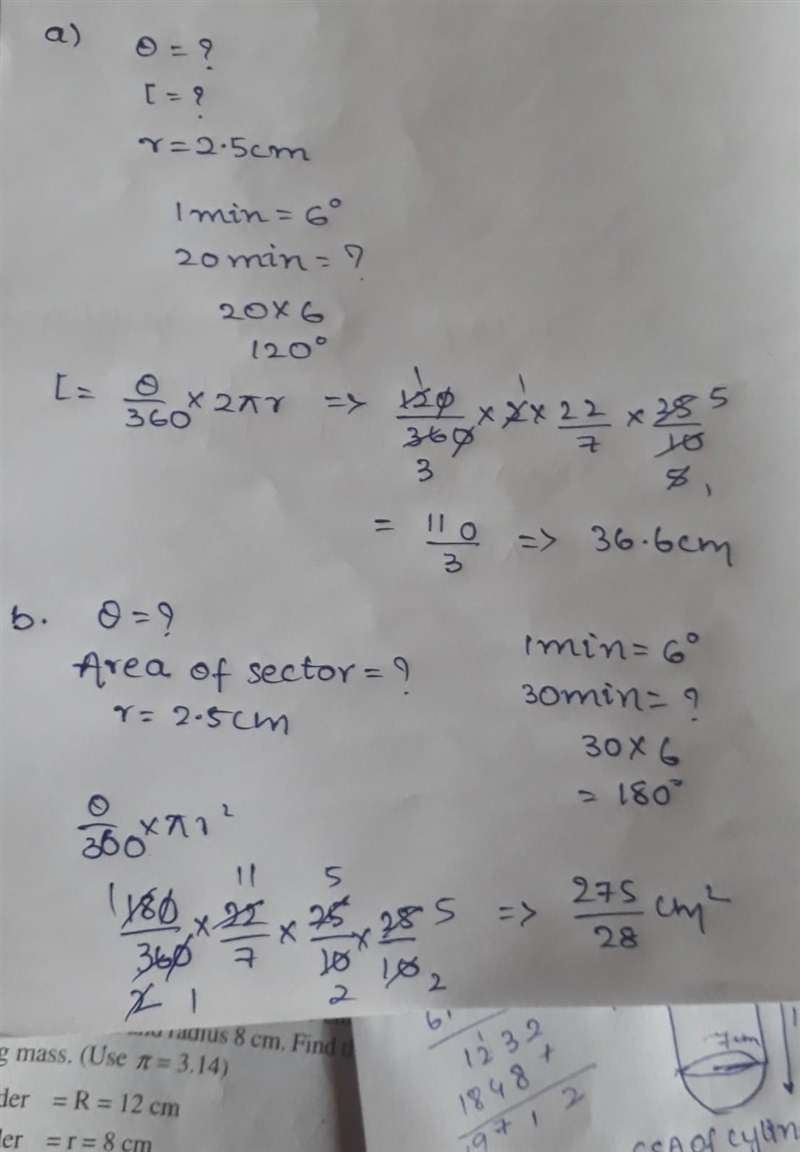 a)
θ = ?
l = ?
r = 2.5cm
1min = 6°
20min = ?
20×6
120°
l = θ/360 × 2πr => 120/360 × 2 × 22/7 × 25/10
1 1 5
3 2 1
= 110/3 => 36.6cm
b. θ = ?
Area of sector = ?
r = 2.5cm
1min = 6°
30min = ?
30×6
= 180°
θ/360 × πr²
1 11 5 5
180/360 × 22/7 × 25/10 × 25/10 => 275/28 cm²
2 1 2 2
radius 8 cm. Find
g mass. (Use π = 3.14)
der = R = 12 cm
der = r = 8 cm
1
1232
1848+
9712
7cm
CSA of cylin